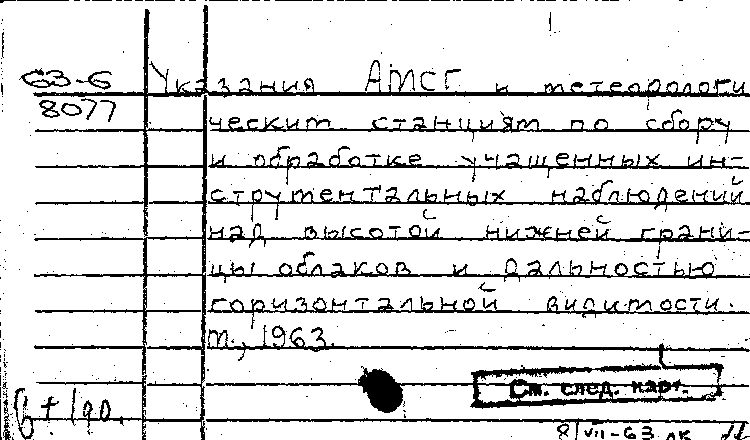 63-6
8077
Указания АМСГ и метеорологи
ческим станциям по сбору
и обработке учащенных ин-
струментальных наблюдений
над высотой нижней грани-
цы облаков и дальностью
горизонтальной видимости.
М., 1963.
См. след. карт.
8/VII-63 лк